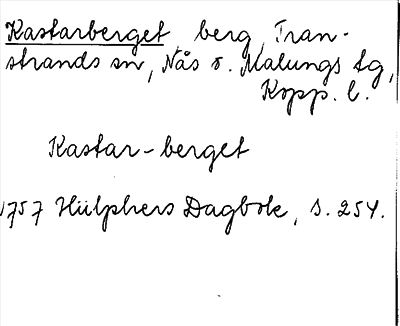 Kastarberget, berg, Tran-
strands sn, Nås o. Malungs tg,
Kopp. l.
Kastar-berget
1757 Hülphers Dagbok, s. 254.